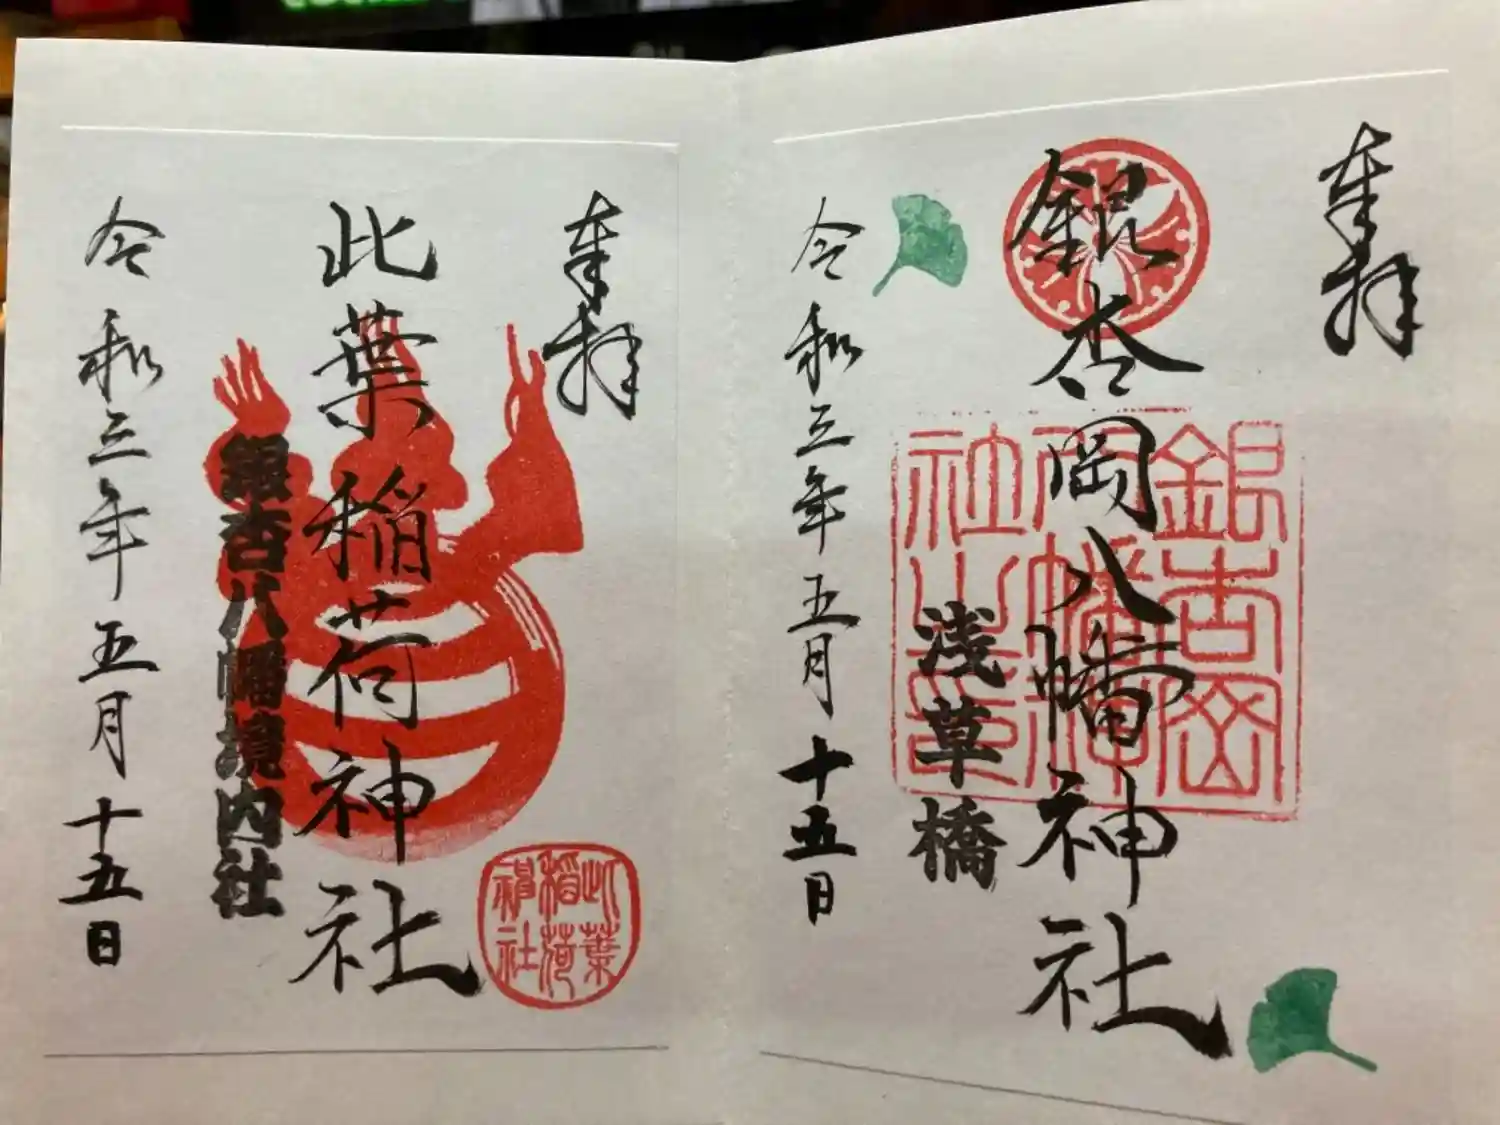 奉拝
銀杏岡八幡神社
銀杏岡
八幡
神社之印
浅草橋
令和三年五月十五日
奉拝
此葉稲荷神社
此葉
稲荷
神社
銀杏八幡境内社
令和三年五月十五日